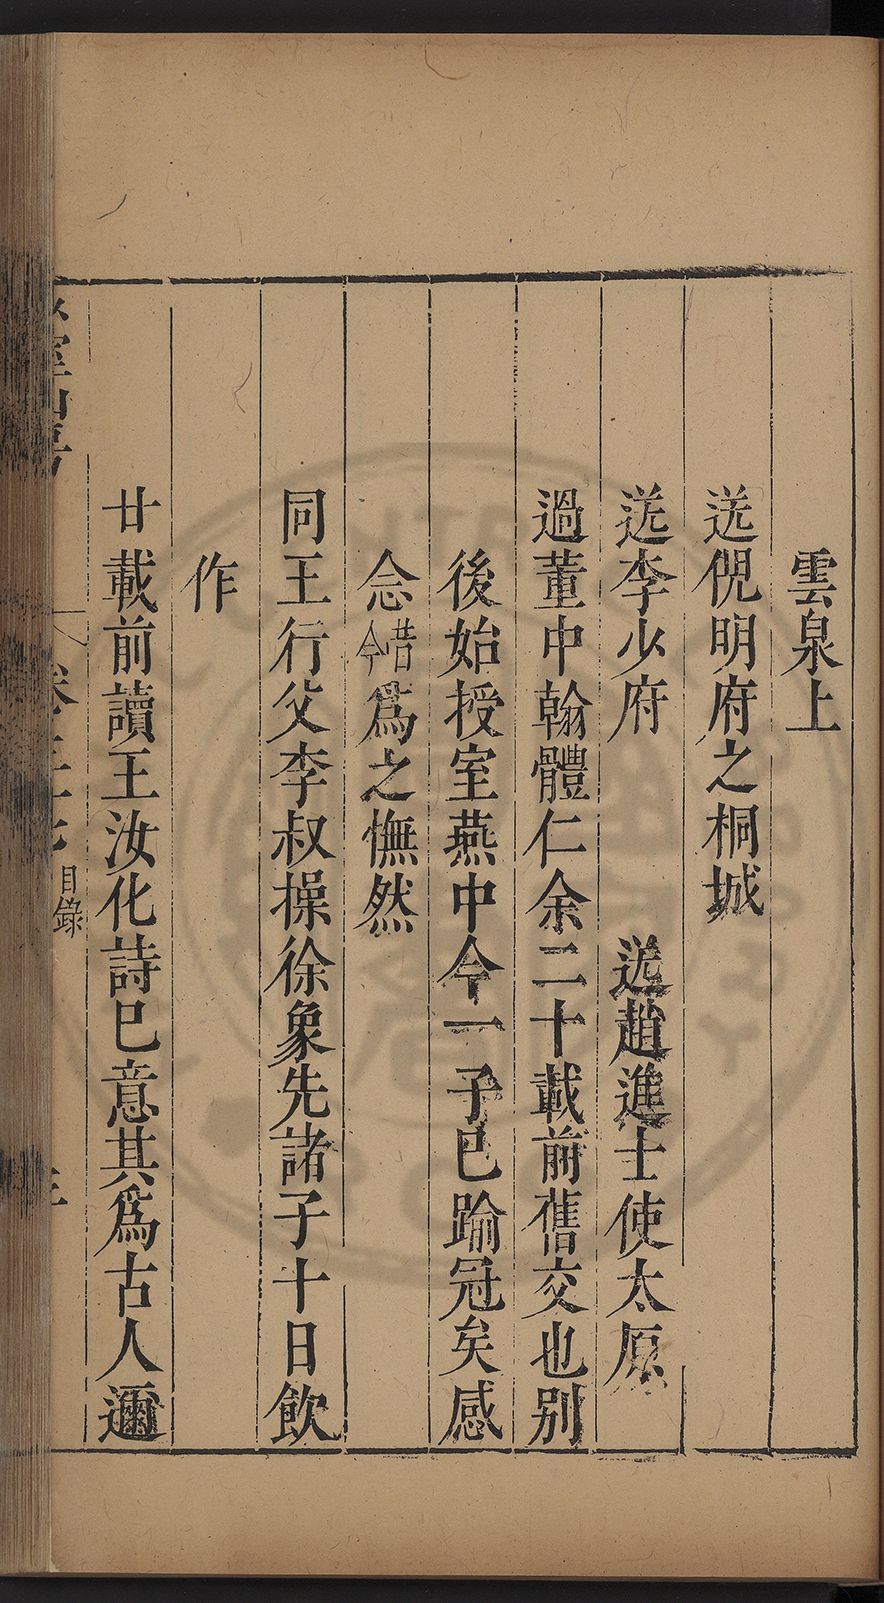 雲泉上
送倪明府之桐城
送李少府　送趙進士使太原
過董中翰體仁余二十載前舊交也别
後始授室燕中今一子已踰冠矣感
念昔今爲之憮然
同王行父李叔操徐象先諸子十日飲
作
廿載前讀王汝化詩已意其爲古人邇
目錄